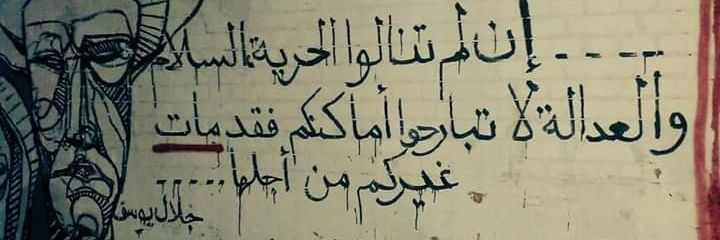 ---- إن لم تنالوا الحرية، السلام
والعدالة لا تبارحوا أماكنكم فقد مات
غيركم من أجلها .....
جلال يوسف